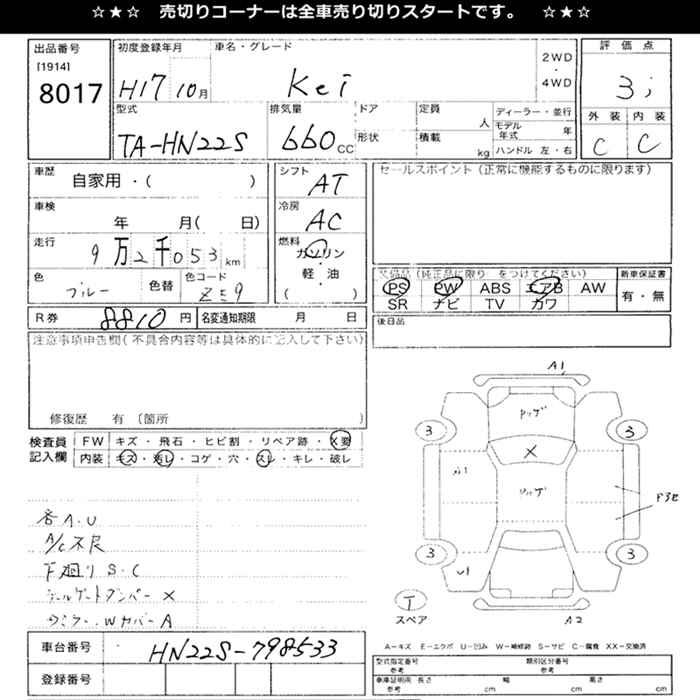 ☆★☆ 売切りコーナーは全車売り切りスタートです。 ☆★☆
出品番号
[1914]
8017
初度登録年月
H17 10月
車名・グレード
Kei
2WD
・
4WD
評価点
3
外装 内装
C C
型式
TA-HN22S
排気量
660 CC
ドア
形状
定員
人
積載
kg
ディーラー・並行
モデル年式 年
ハンドル 左・右
車歴
自家用・( )
シフト
AT
車検
年 月( 日)
冷房
AC
走行
9万2千053 km
燃料
ガソリン
・
軽・油
( )
色
ブルー
色替
色コード
セールスポイント(正常に機能するものに限ります)
次備品(純正品に限り をつけてください)
PS PW ABS エアB AW
SR ナビ TV カワ
新車保証書
有・無
R券 8810 円 名変通知期限 月 日
後日品
注意事項申告欄(不具合内容等は具体的に記入して下さい)
修復歴 有 〔箇所
検査員
記入欄
FW キズ・飛石・ヒビ割・リペア跡・X要
内装 キズ・汚レ・コゲ・穴・スレ・キレ・破レ
各A.U
A/C不良
下廻りS.C
テールゲートダンパー×
Wカバー A
A1
3 3
×
3 3
A2
T
スペア
車台番号
HN22S-798533
登録番号
A-キズ E-エクボ U-凹み W-補修跡 S-サビ C-腐食 XX-交換済
型式指定番号
参考
類別区分番号
参考
車庫証明用 長さ 幅 高さ
参考 cm cm cm